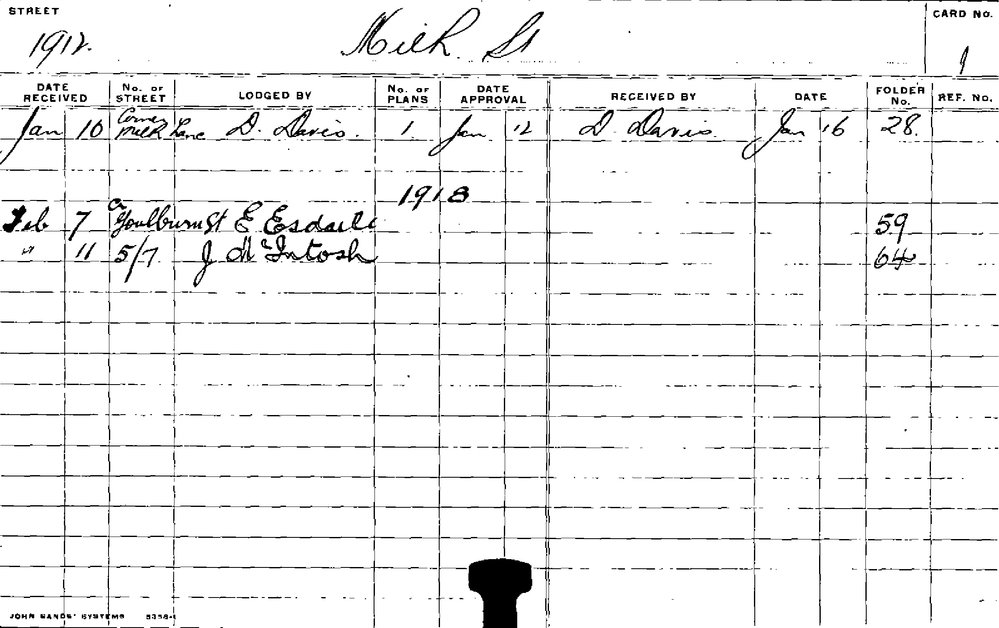 STREET
1912. Milk St
CARD No.
1
DATE RECEIVED No. OF STREET LODGED BY No. OF PLANS DATE APPROVAL RECEIVED BY DATE FOLDER No. REF. No.
Jan 10 Corner Milk Lane D. Davis. 1 Jan 12 D. Davis. Jan 16 28.
1918
Feb 7 Cr Goulburn St E Esdaile 59
" 11 5/7 J McIntosh 64
JOHN SANDS' SYSTEMS